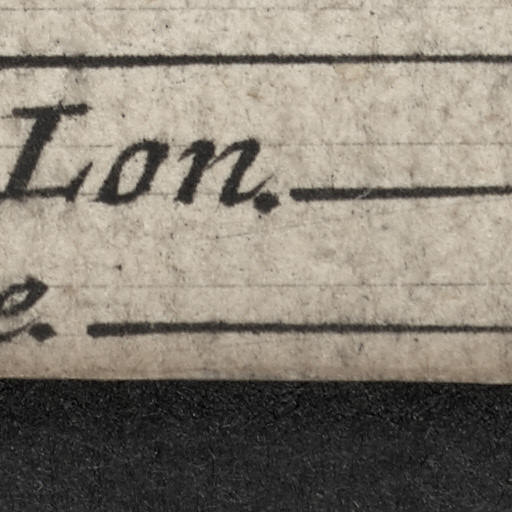 Lon.
e.